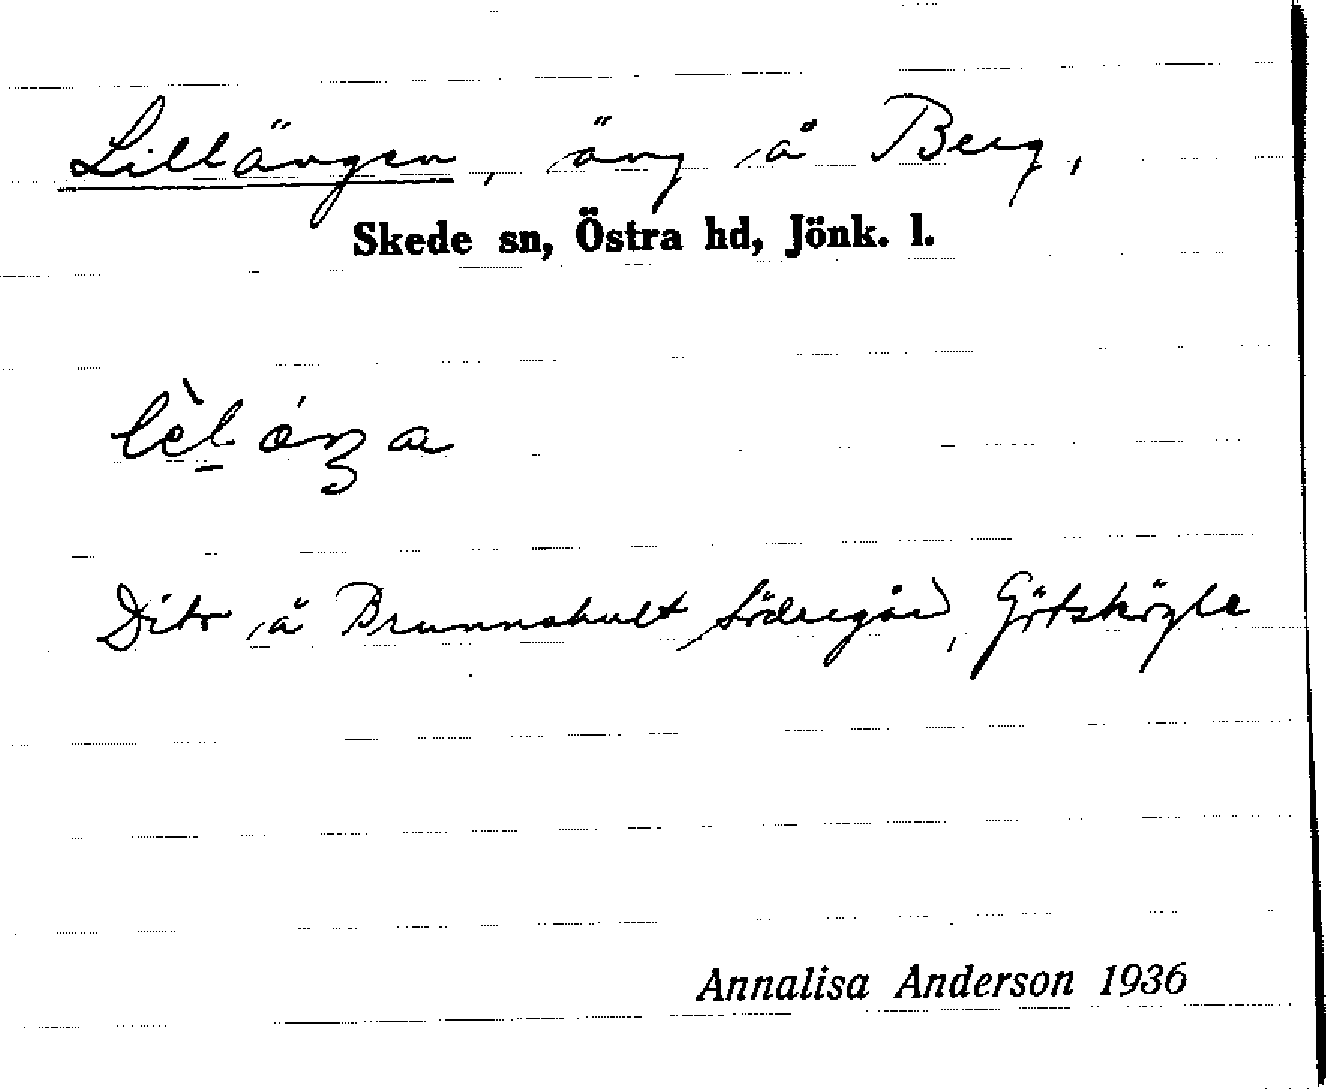 Lillängen, äng å Berg,
Skede sn, Östra hd, Jönk. l.
Dito å Brunnshult Södregård, Götshögla
Annalisa Anderson 1936